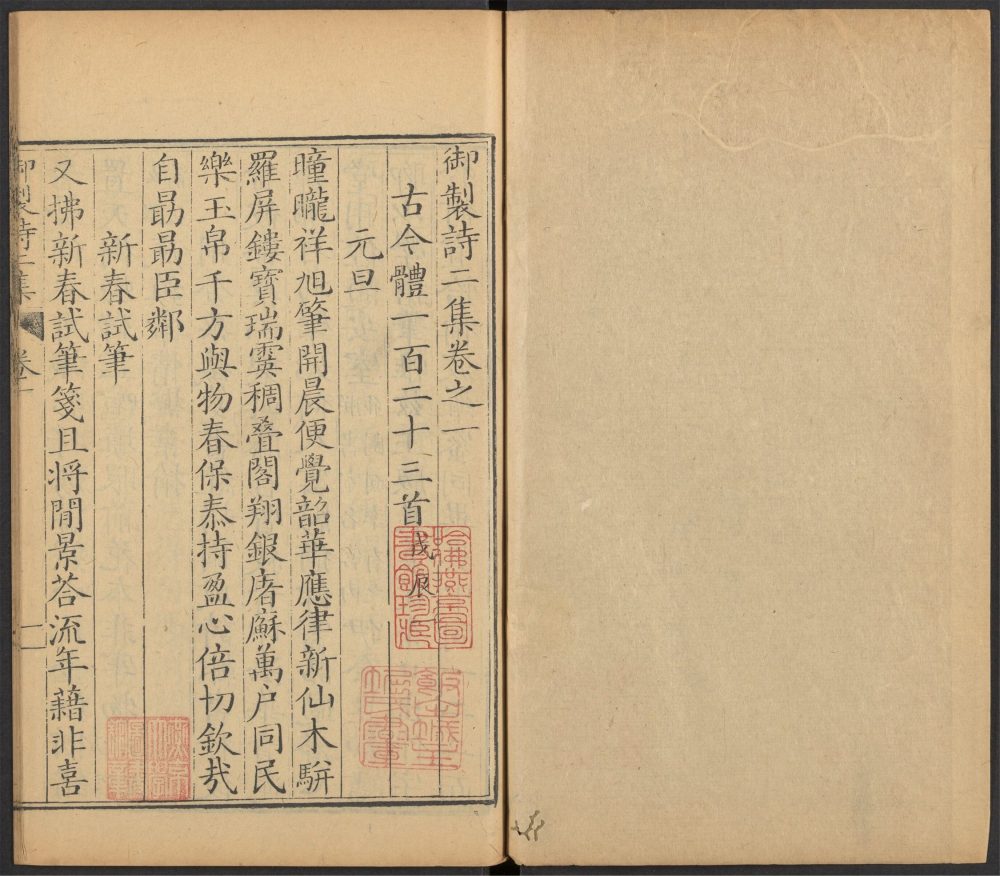 御製詩二集卷之一
古今體一百二十三首戊辰一
元旦
曈曨祥旭肇開晨便覺韶華應律新仙木騈
羅屏鏤寶瑞霙稠疊閣翔銀屠蘇萬户同民
樂玉帛千方與物春保泰持盈心倍切欽㢤
自勗勗臣鄰
新春試筆
又拂新春試筆箋且將閒景荅流年藉非喜
御製詩二集 卷一 一
哈佛燕京圖書館珍藏